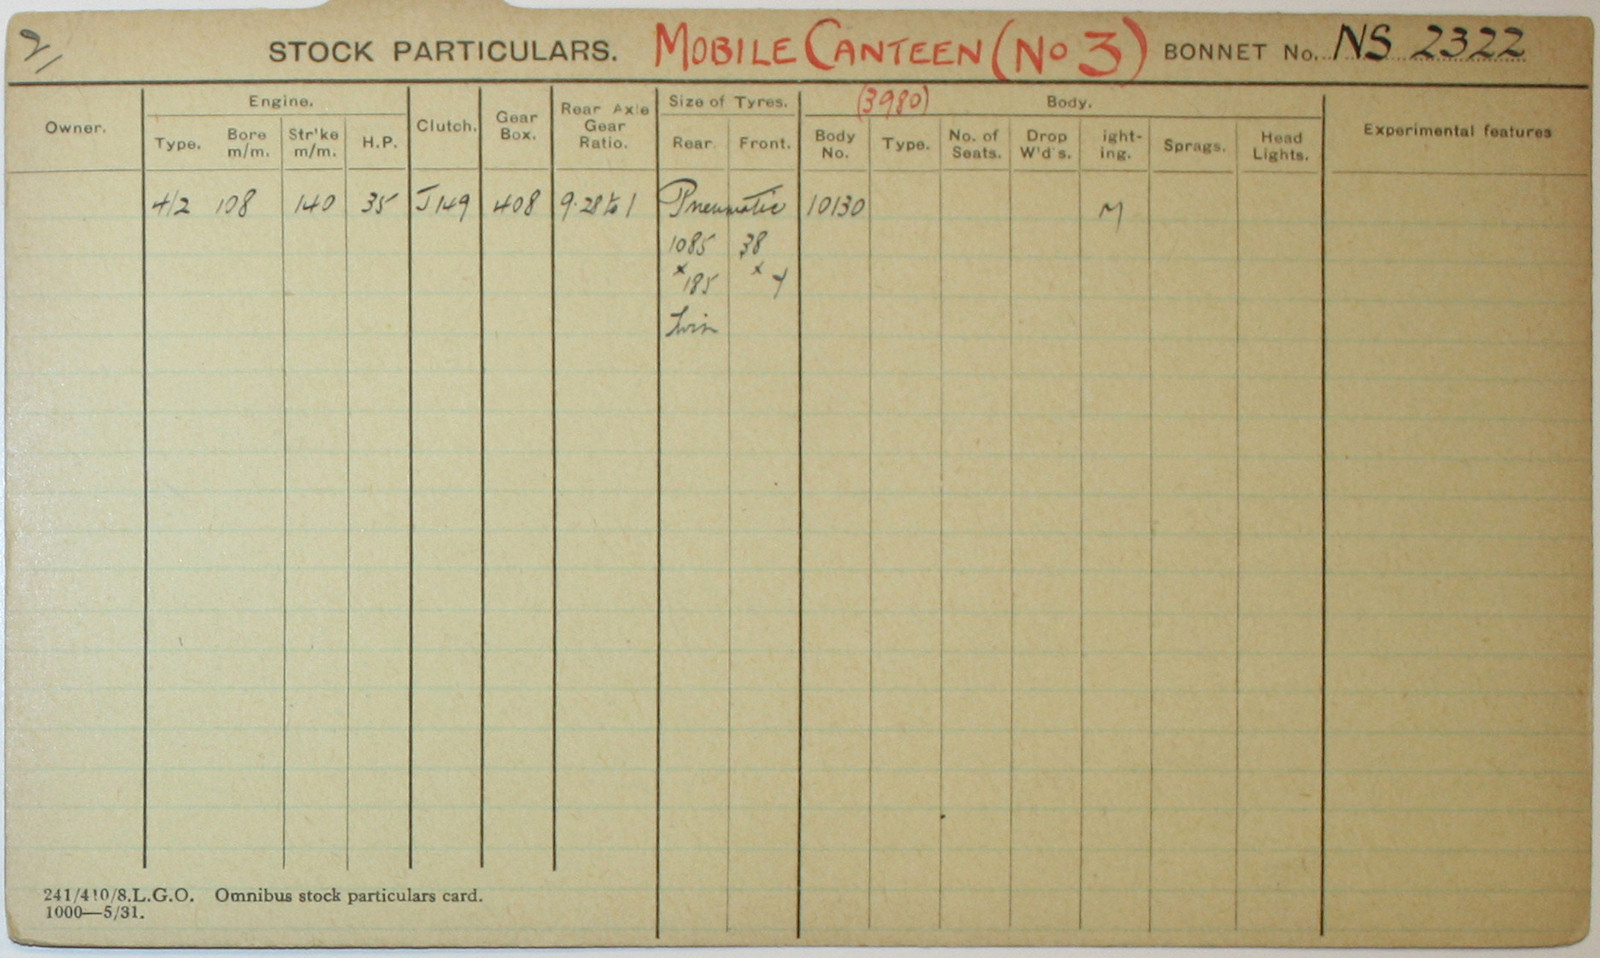 2/
STOCK PARTICULARS. MOBILE CANTEEN (No 3) BONNET No. NS 2322
Owner. Engine. Clutch. Gear Box. Rear Axle Gear Ratio. Size of Tyres. (3980) Body. Experimental features
Type. Bore m/m. Str'ke m/m. H.P. Rear. Front. Body No. Type. No. of Seats. Drop W'd's. ight-ing. Sprags. Head Lights.
4/2 108 140 35 J149 408 9.28 to 1 Pneumatic 10130 M
1085 38
x 185 x 7
twin
241/410/8.L.G.O. Omnibus stock particulars card.
1000—5/31.